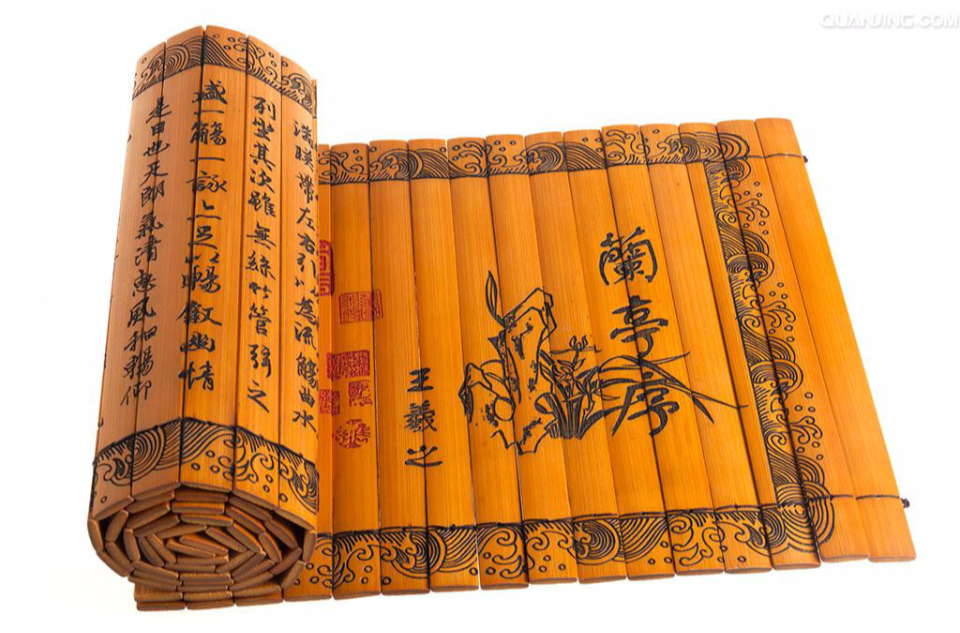 蘭亭序
王羲之
湍暎帶左右引以為流觴曲水
列坐其次雖無絲竹管弦之
盛一觴一詠亦足以暢叙幽情
是日也天朗氣清惠風和暢仰
QUANJING.COM